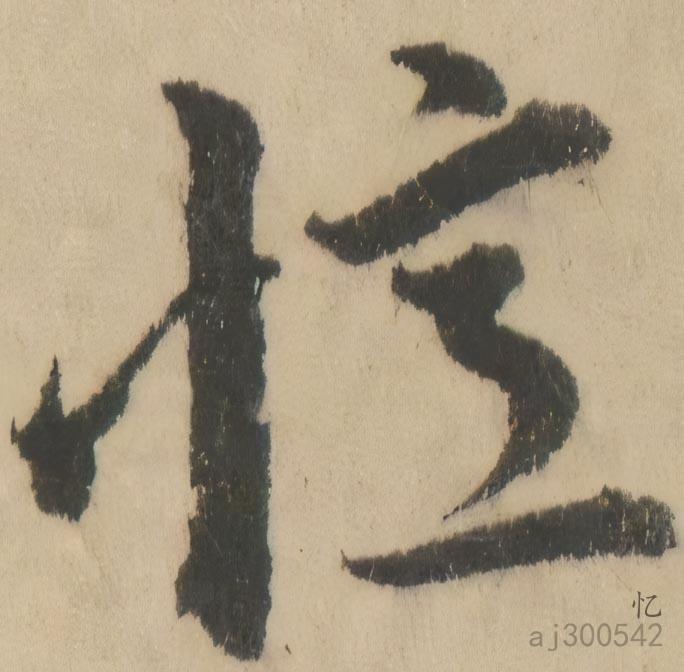 憶
忆
aj300542